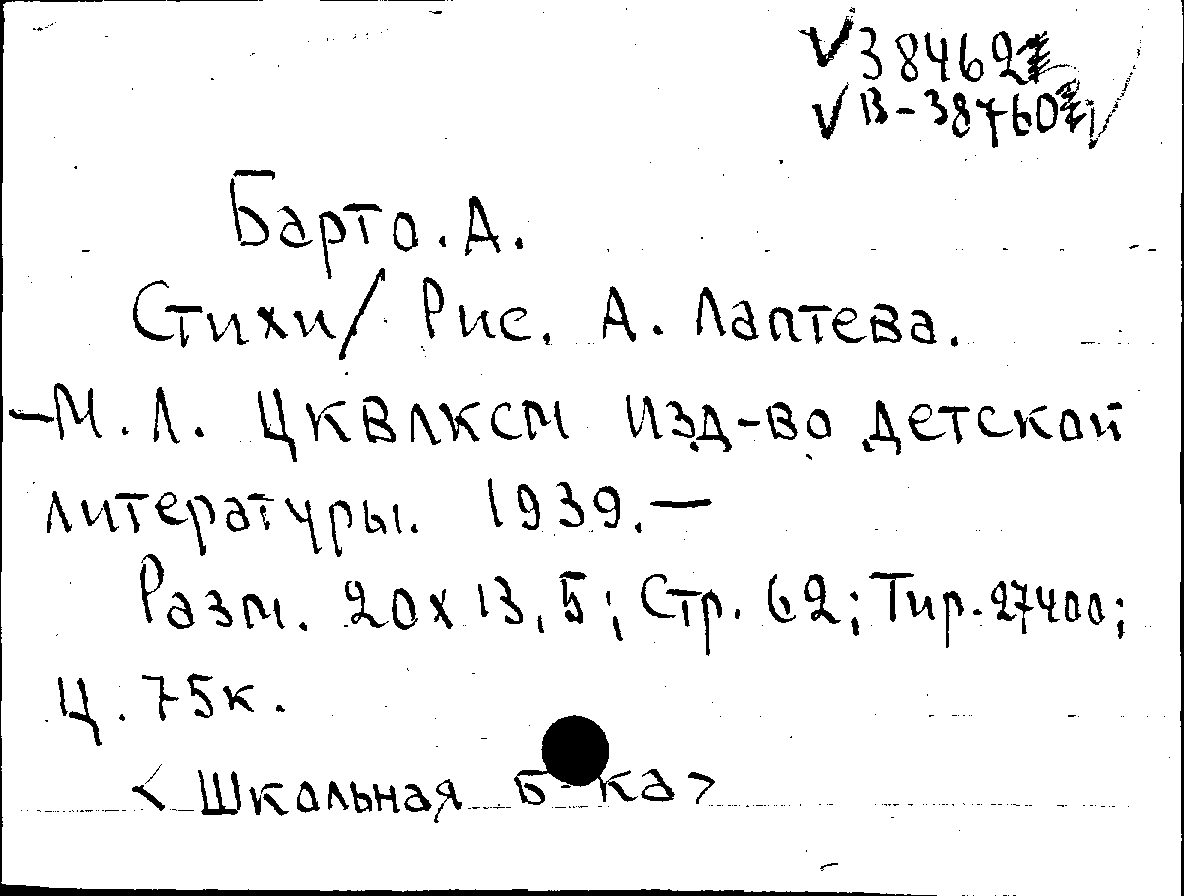 V 38462
V В-38760
Барто. А.
Стихи/ Рис. А. Лаптева.
-М. Л. ЦКВЛКСМ Изд-во детской
литературы. 1939.—
Разм. 20х13,5; Стр. 62; Тир. 27400;
Ц. 75к.
< Школьная б-ка>